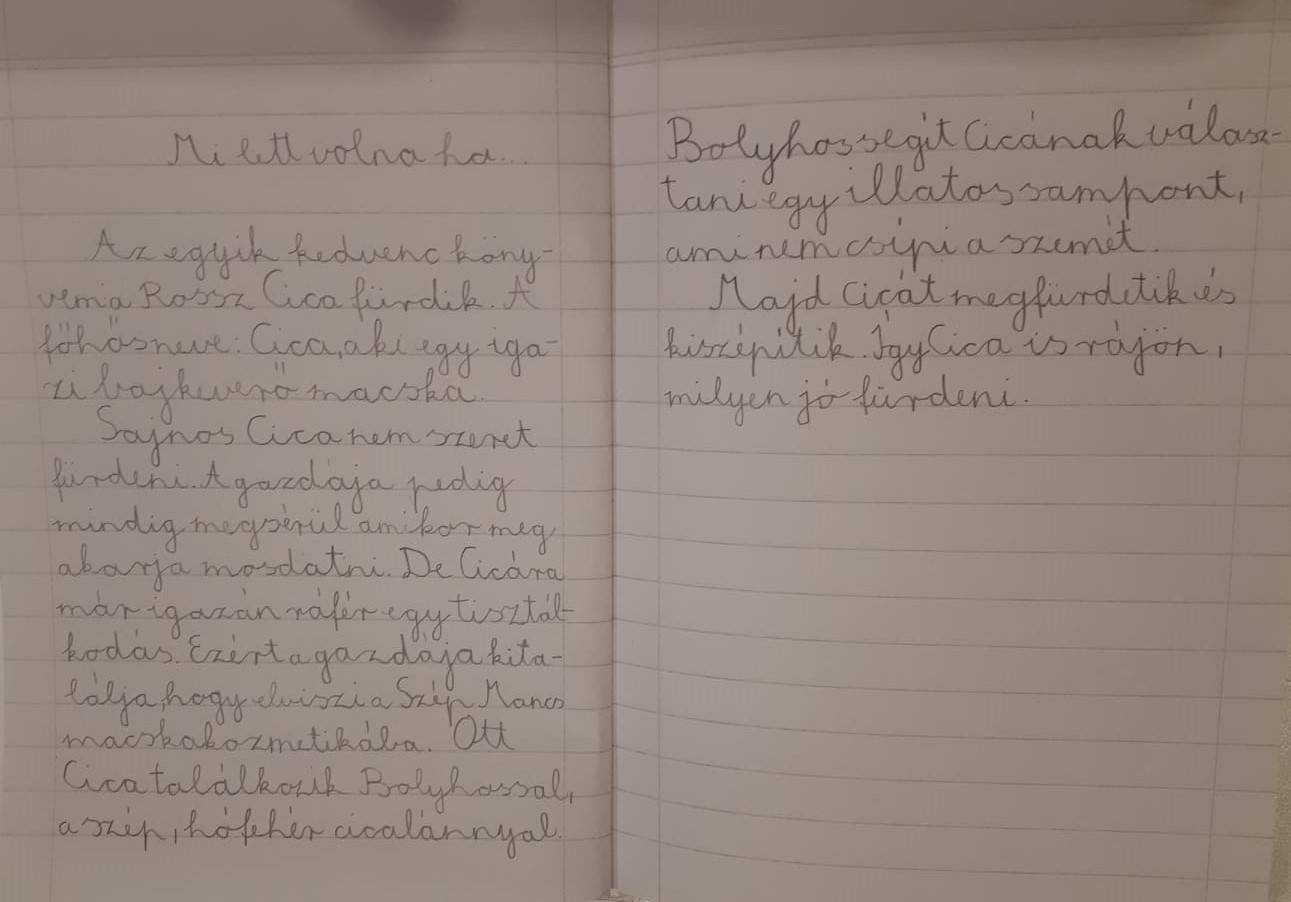 Mi lett volna ha...
Az egyik kedvenc köny-
vem a Rossz Cica fürdik. A
főhős neve: Cica, aki egy iga-
zi bajkeverő macska.
Sajnos Cica nem szeret
fürdeni. A gazdája pedig
mindig megsérül amikor meg
akarja mosdatni. De Cicára
már igazán ráfér egy tisztál-
kodás. Ezért a gazdája kita-
lálja, hogy elviszi a Szép Mancs
macskakozmetikába. Ott
Cica találkozik Bolyhossal,
a szép, hófehér cicalánnyal.
Bolyhos segít Cicánakválasz-
tani egy illatos sampont,
ami nem csípi a szemét.
Majd Cicát megfürdetik és
kiszépítik. Így Cica is rájön,
milyen jó fürdeni.